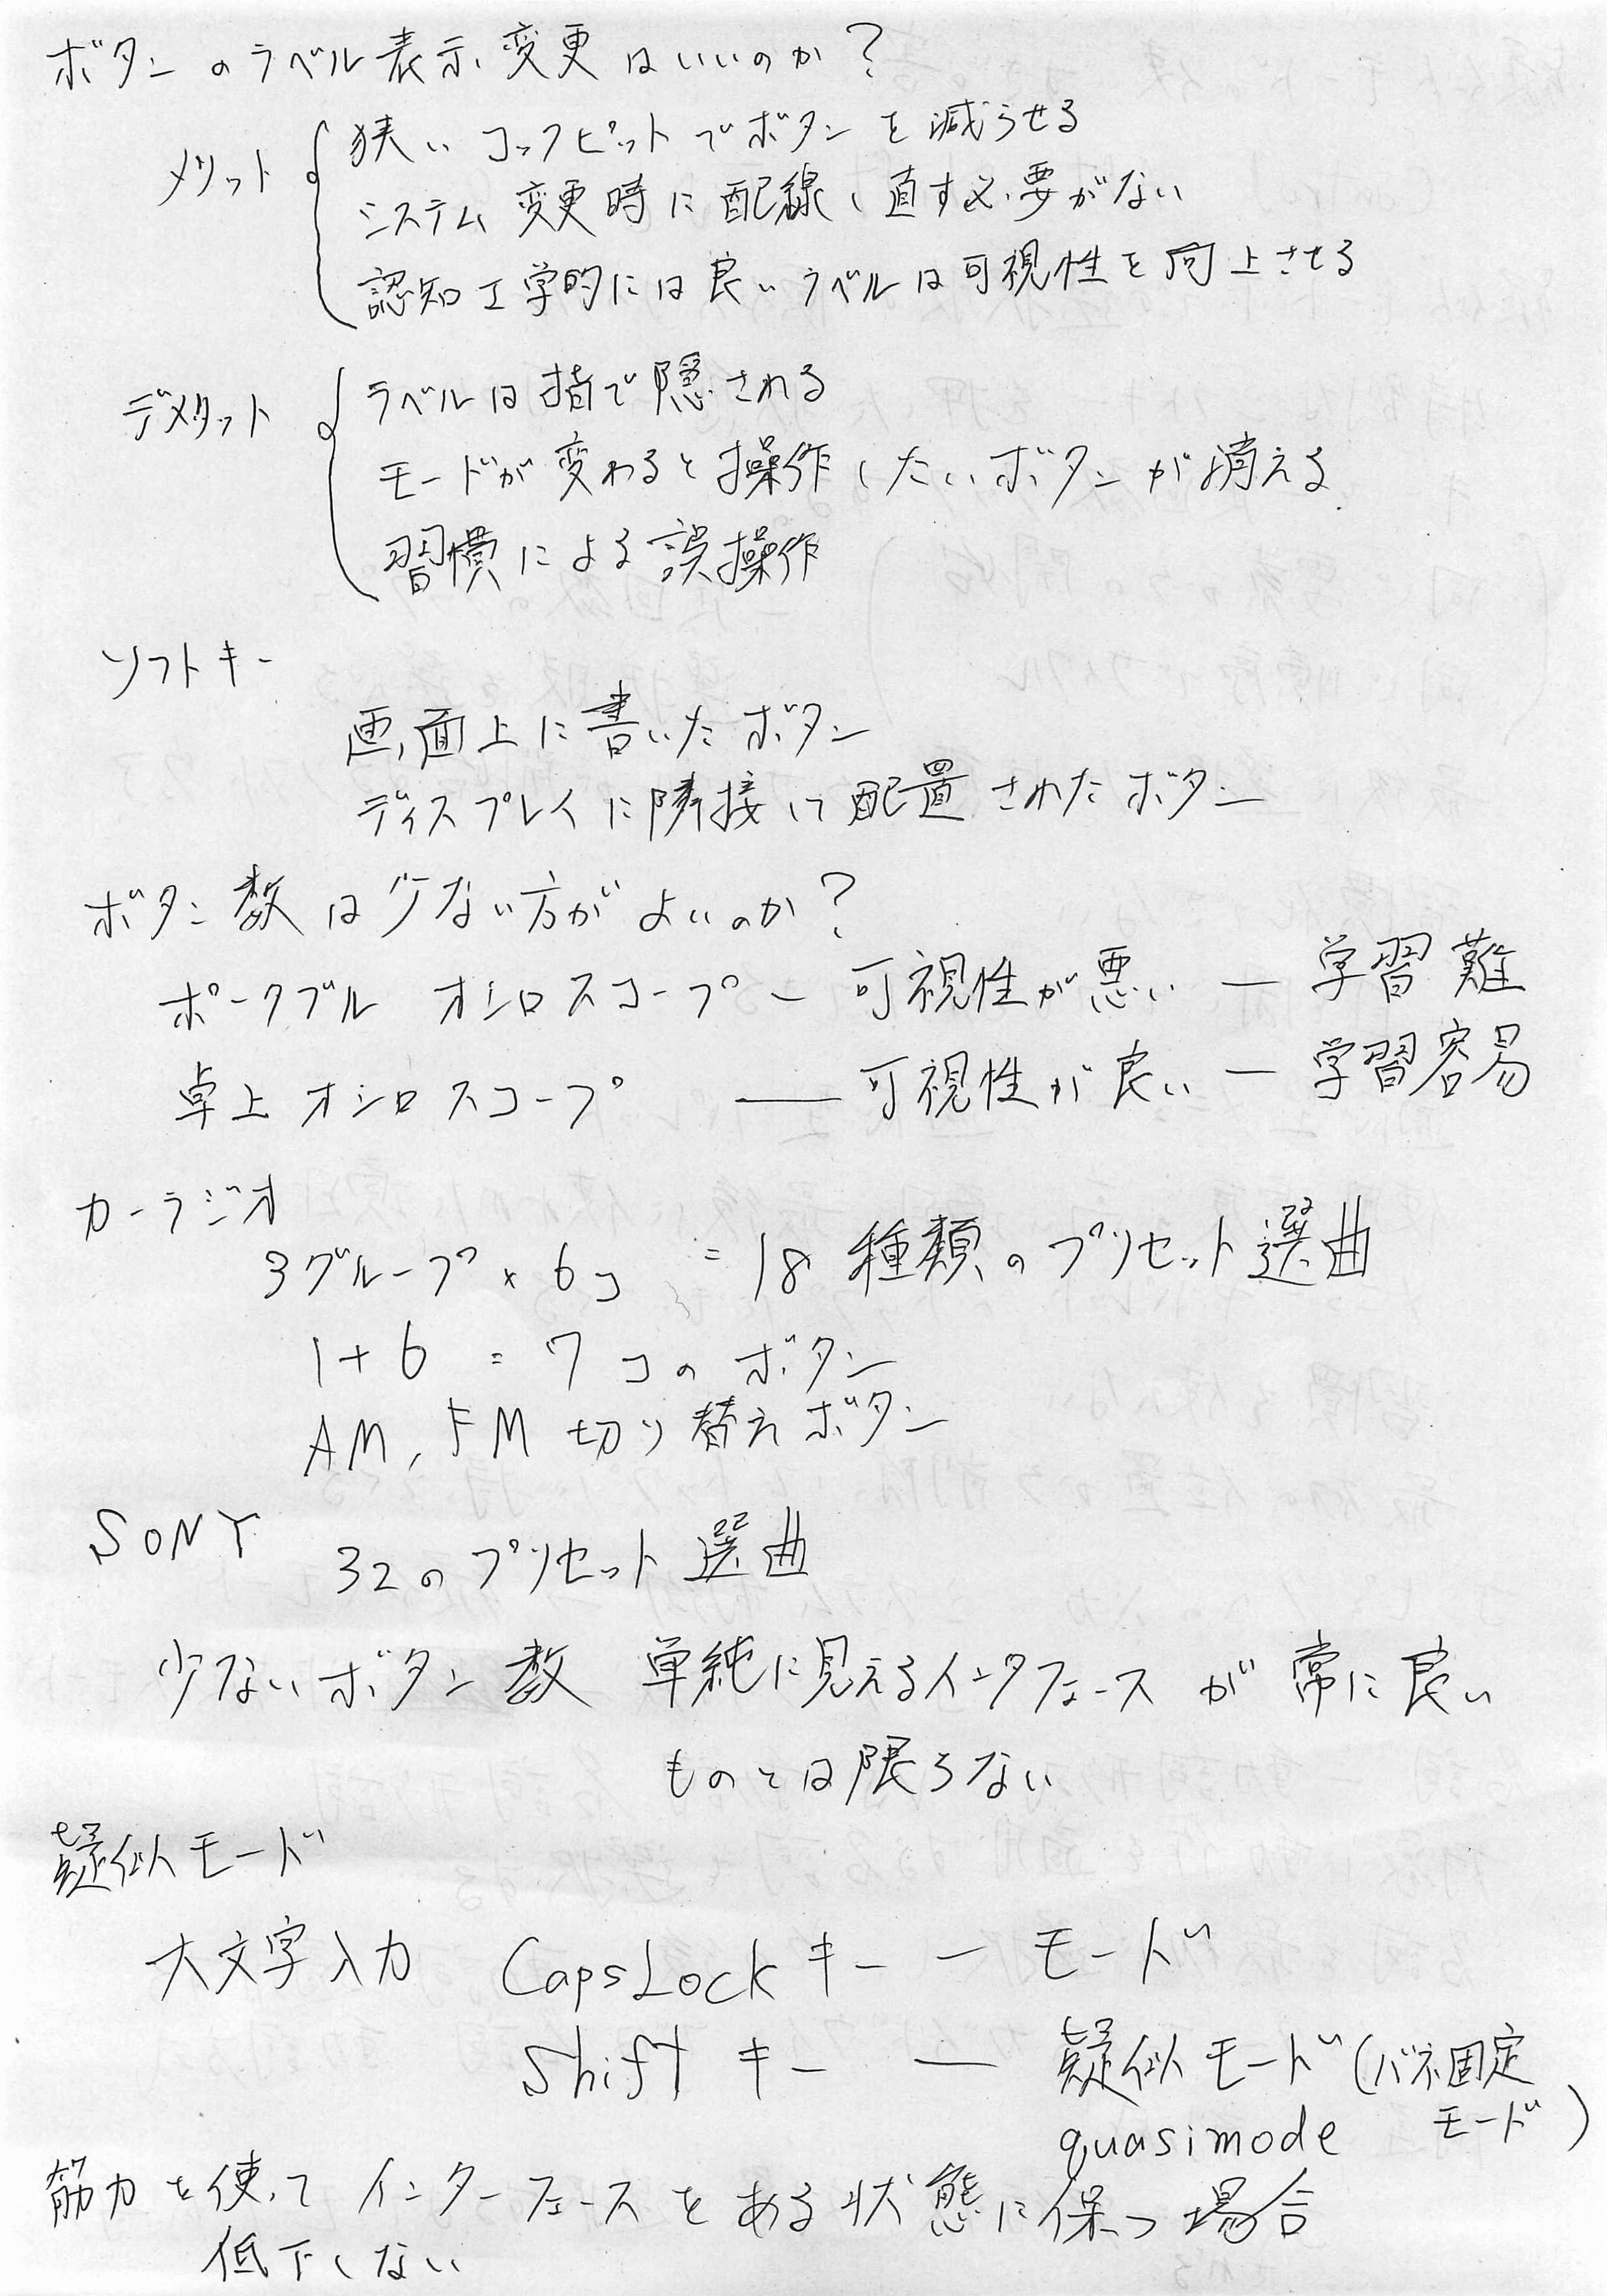 ボタンのラベル表示変更はいいのか?
メリット
狭いコックピットでボタンを減らせる
システム変更時に配線し直す必要がない
認知工学的には良いラベルは可視性を向上させる
デメリット
ラベルは指で隠される
モードが変わると操作したいボタンが消える
習慣による誤操作
ソフトキー
画面上に書いたボタン
ディスプレイに隣接して配置されたボタン
ボタン数は少ない方がよいのか?
ポータブル オシロスコープ ー 可視性が悪い ー 学習難
卓上オシロスコープ ー 可視性が良い ー 学習容易
カーラジオ
3グループ×6コ = 18種類のプリセット選曲
1+6 = 7コのボタン
AM, FM切り替えボタン
SONY 32のプリセット選曲
少ないボタン数 単純に見えるインタフェースが常に良い
ものとは限らない
疑似モード
大文字入力 CapsLockキー ー モード
Shiftキー ー 疑似モード(バネ固定
quasimode モード)
筋力を使って インターフェースをある状態に保つ場合
低下しない